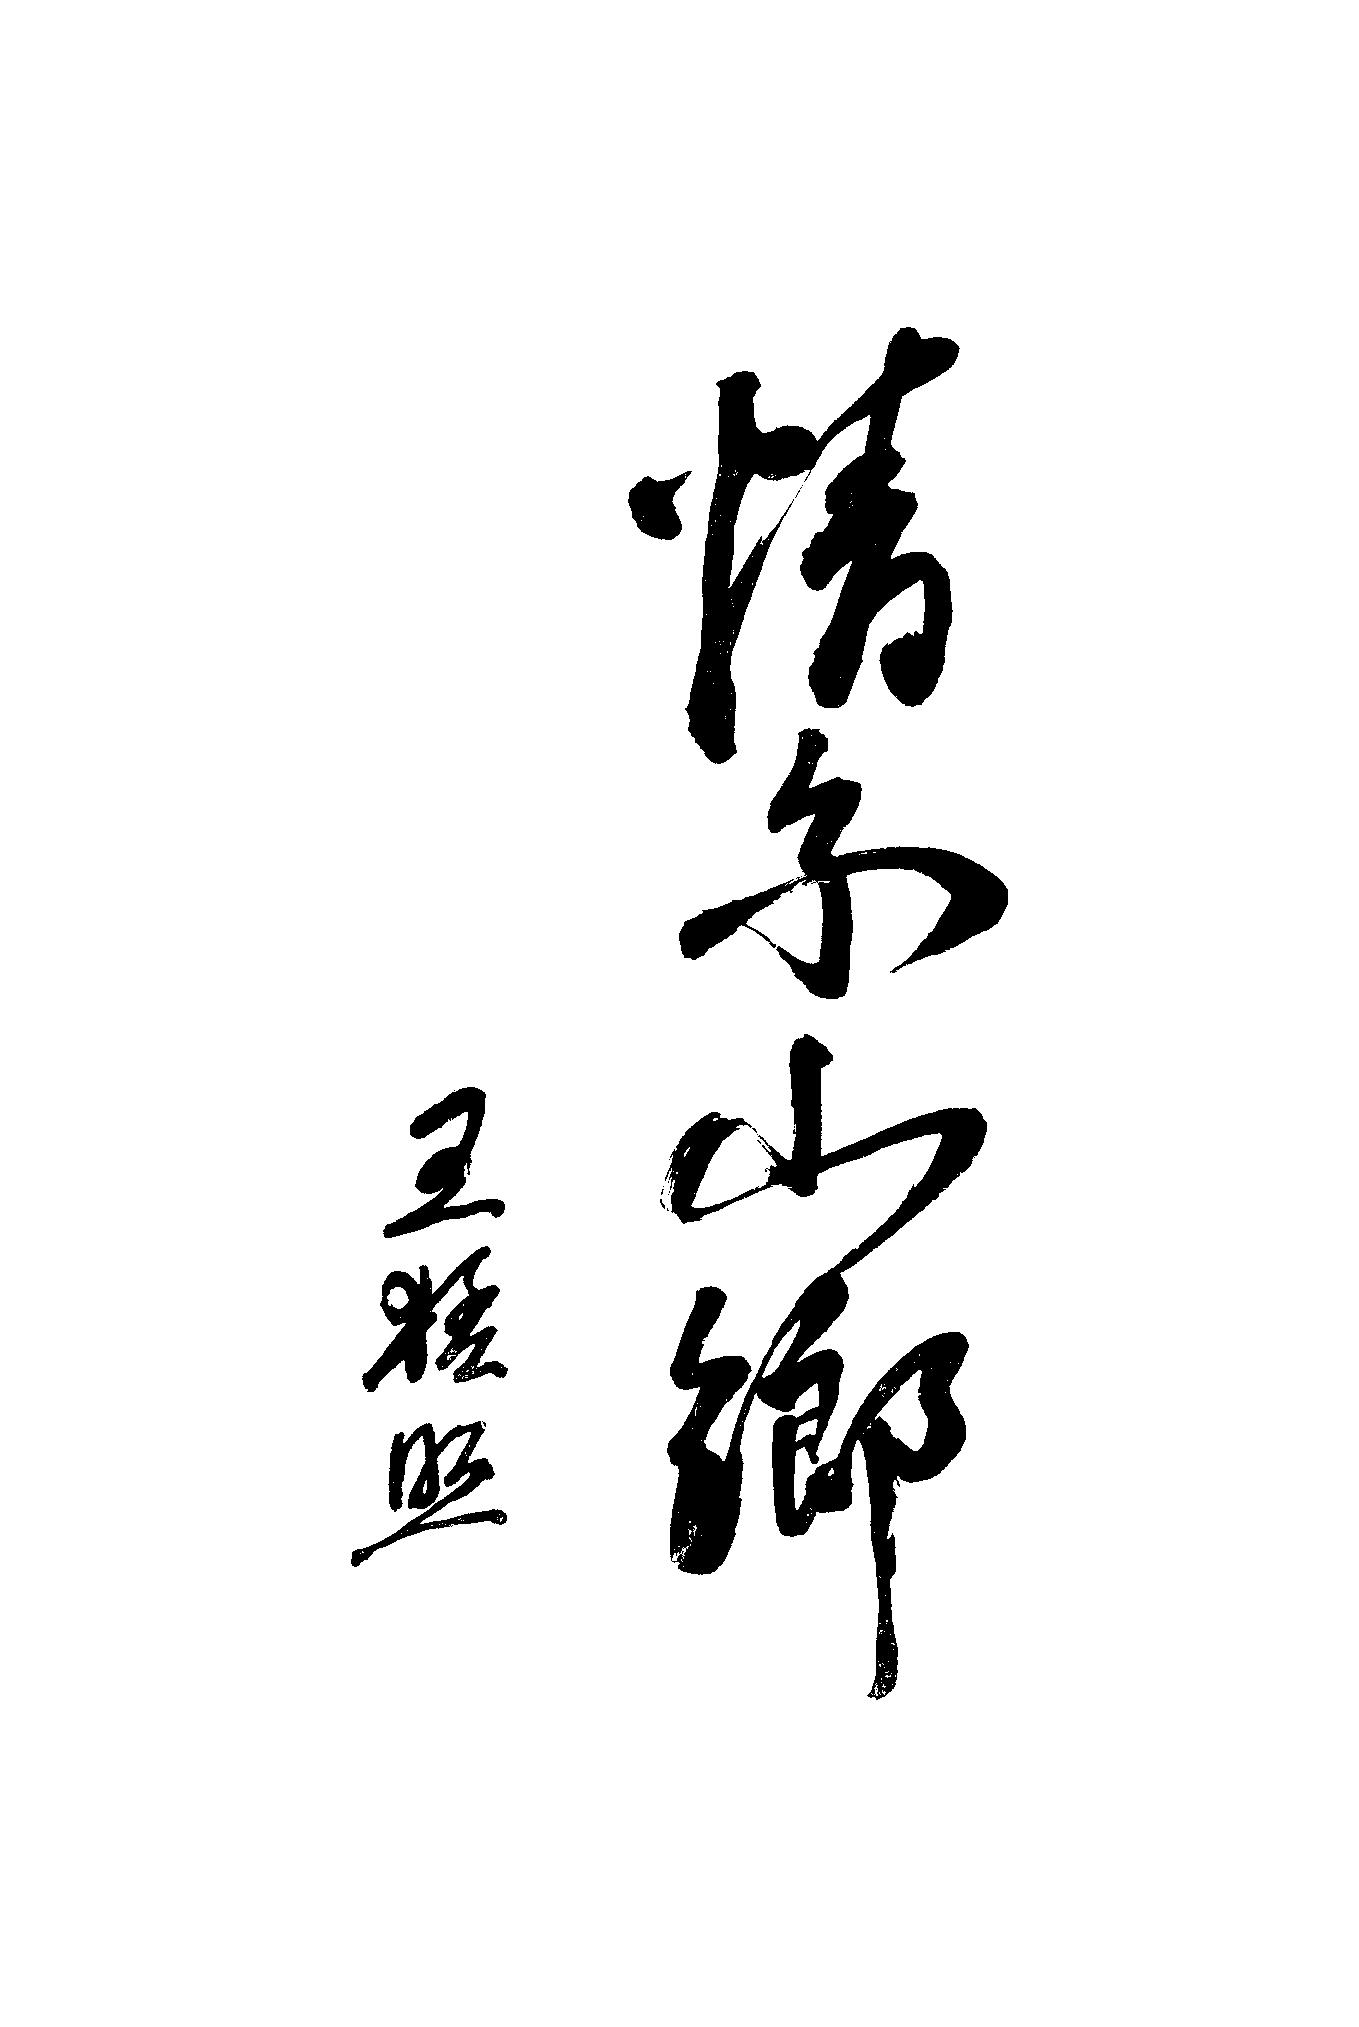 情系山鄉
王猛照